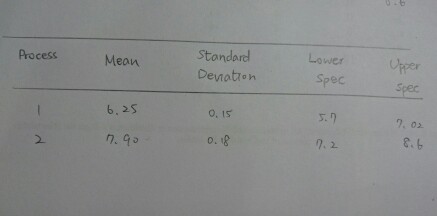 0.6
Process Mean Standard Deviation Lower Spec Upper Spec
1 6.25 0.15 5.7 7.02
2 7.90 0.18 7.2 8.6